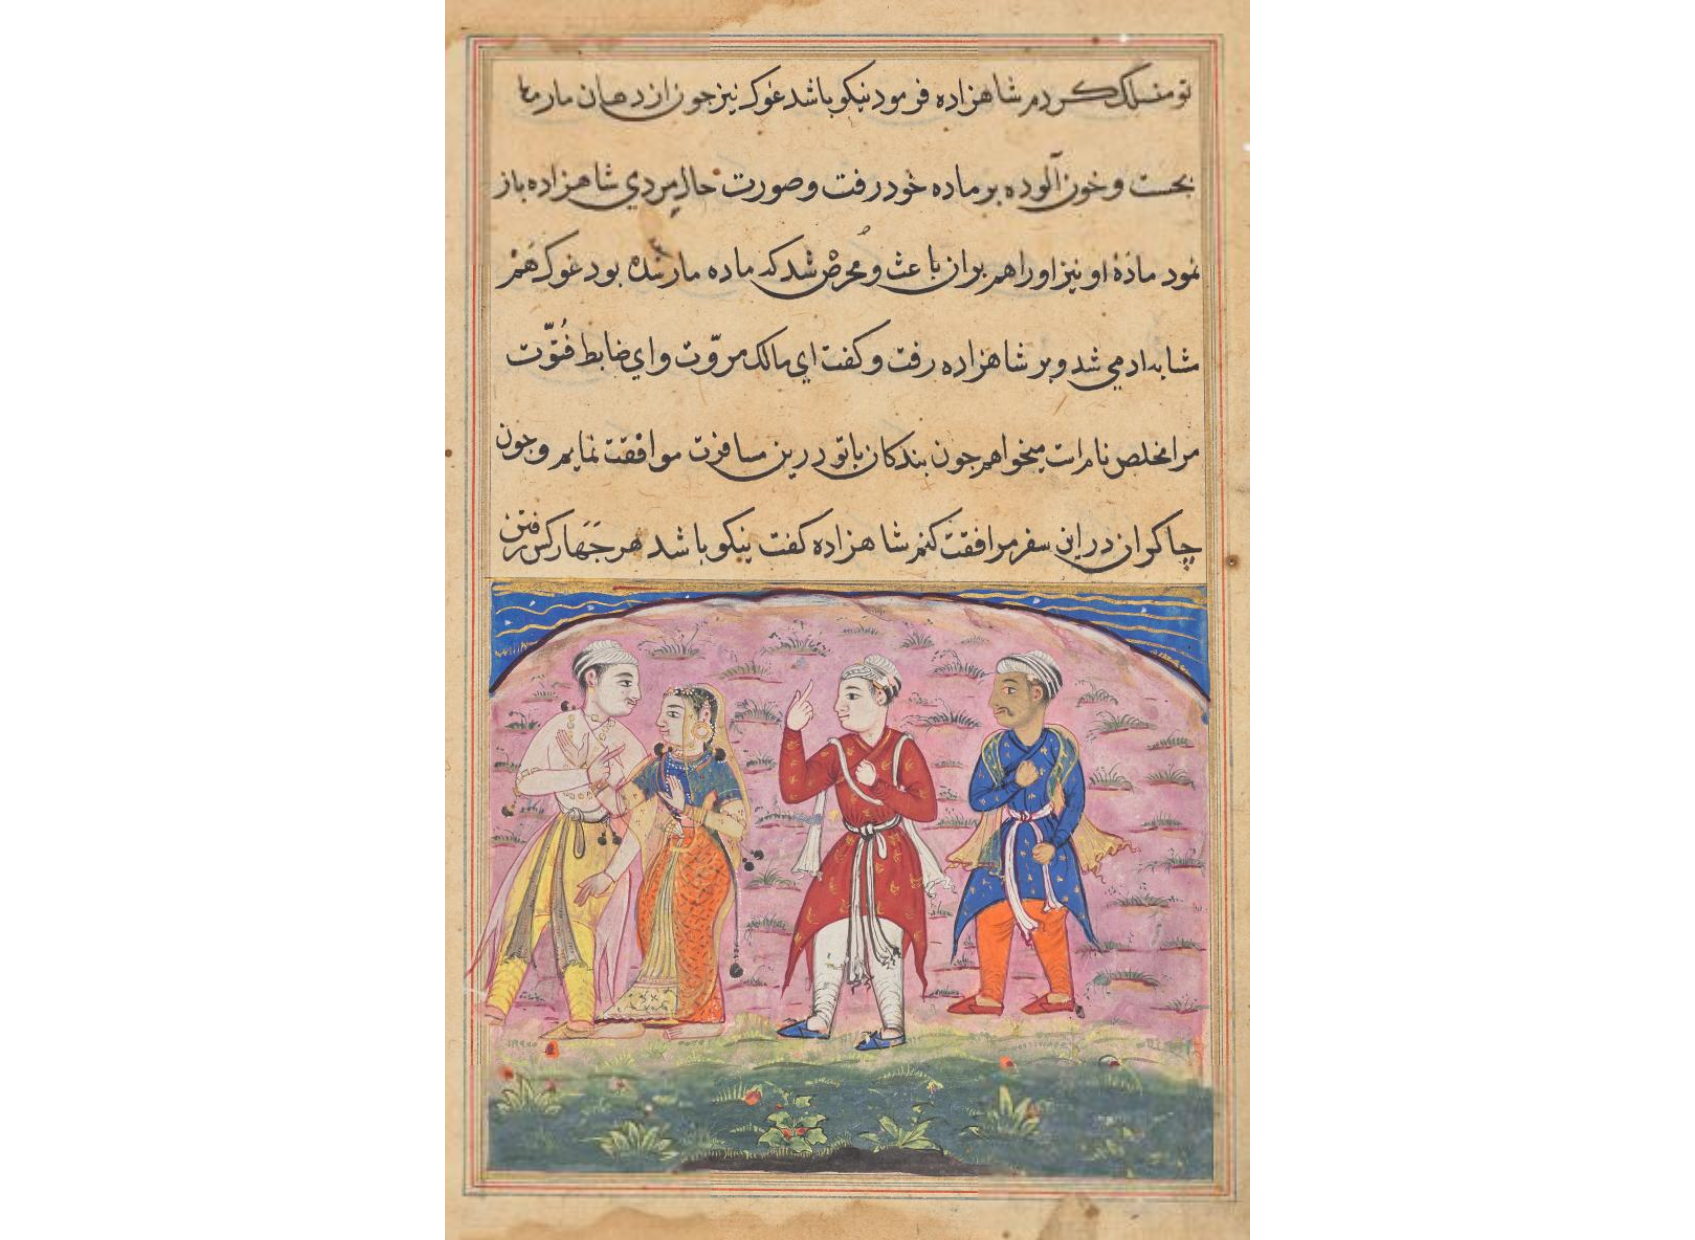 تو منسلک کردم شاهزاده فرمود نیکو باشد غوک نیز جون از دهان مار رها
بجست و خون آلوده بر ماده خود رفت و صورت حال مردي شاهزاده باز
نمود مادهٔ او نیز او را هم بران باعث و محرض شد که ماده مار شده بود غوک هم
مشابه ادمي شد و بر شاهزاده رفت و کفت اي مالک مروّت و اي ضابط فُتوّت
مرا مخلص نام است میخواهم جون بندکان با تو درین مسافرت موافقت نمایم و جون
چاکران در این سفر مرافقت کنم شاهزاده کفت نیکو باشد هر جَهَار کس رفتن